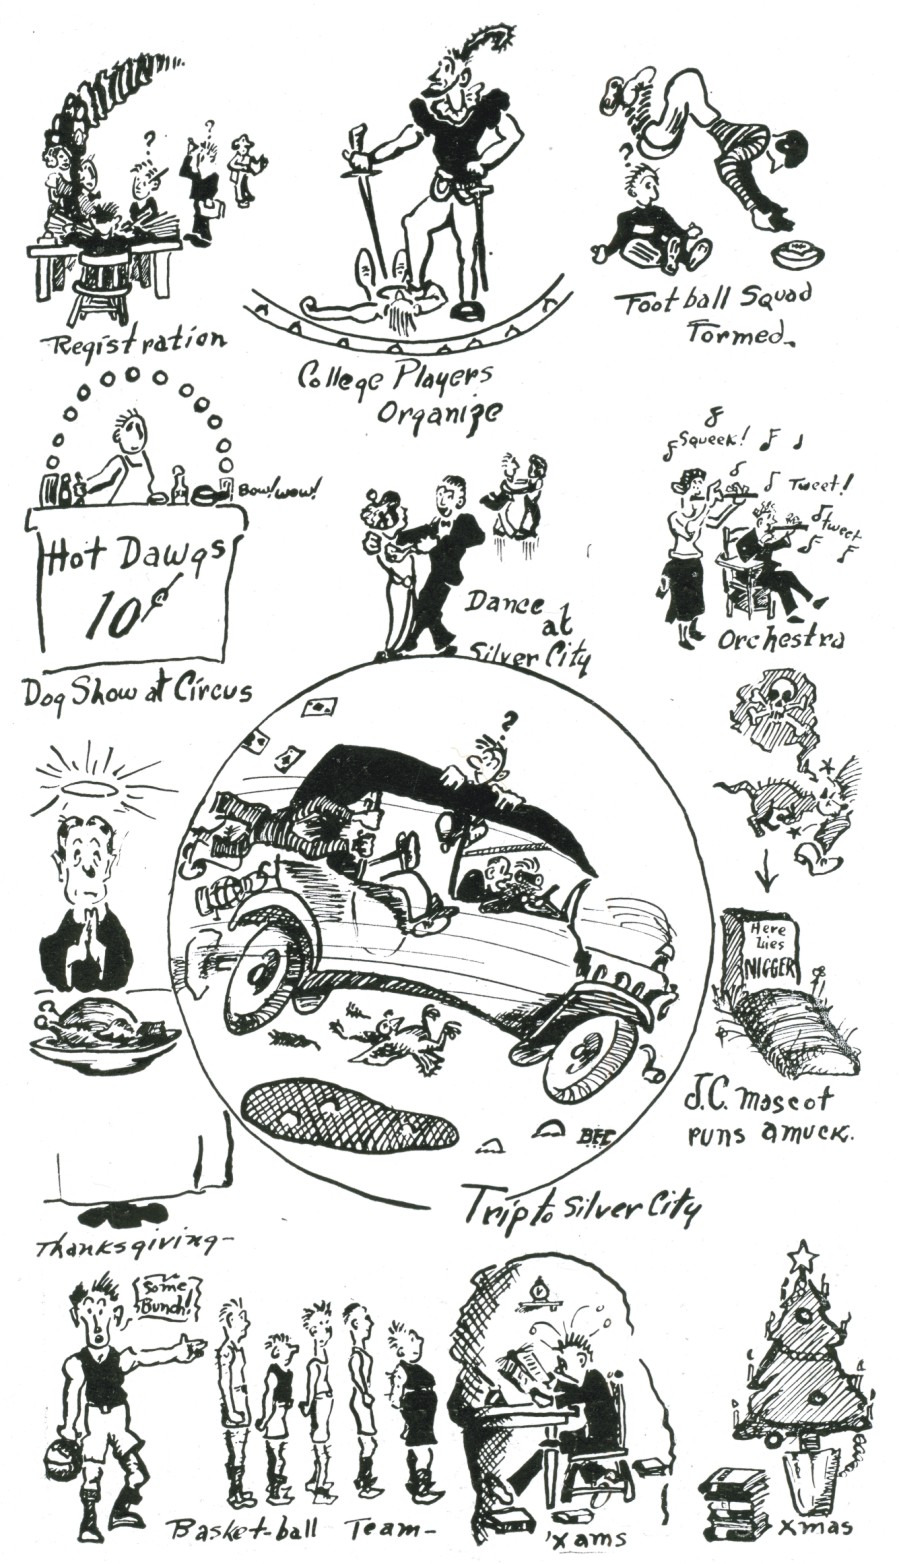 ?
?
?
Registration
College Players
Organize
Football Squad
Formed.
Bow! wow!
Hot Dawgs
10¢
Dog Show at Circus
Dance
at
Silver City
Squeek!
Tweet!
Tweet
Orchestra
?
BFC
Trip to Silver City
Here
Lies
NIGGER
J.C. Mascot
runs amuck.
Thanksgiving-
Some
Bunch!
Basket-ball Team-
'Xams
Xmas